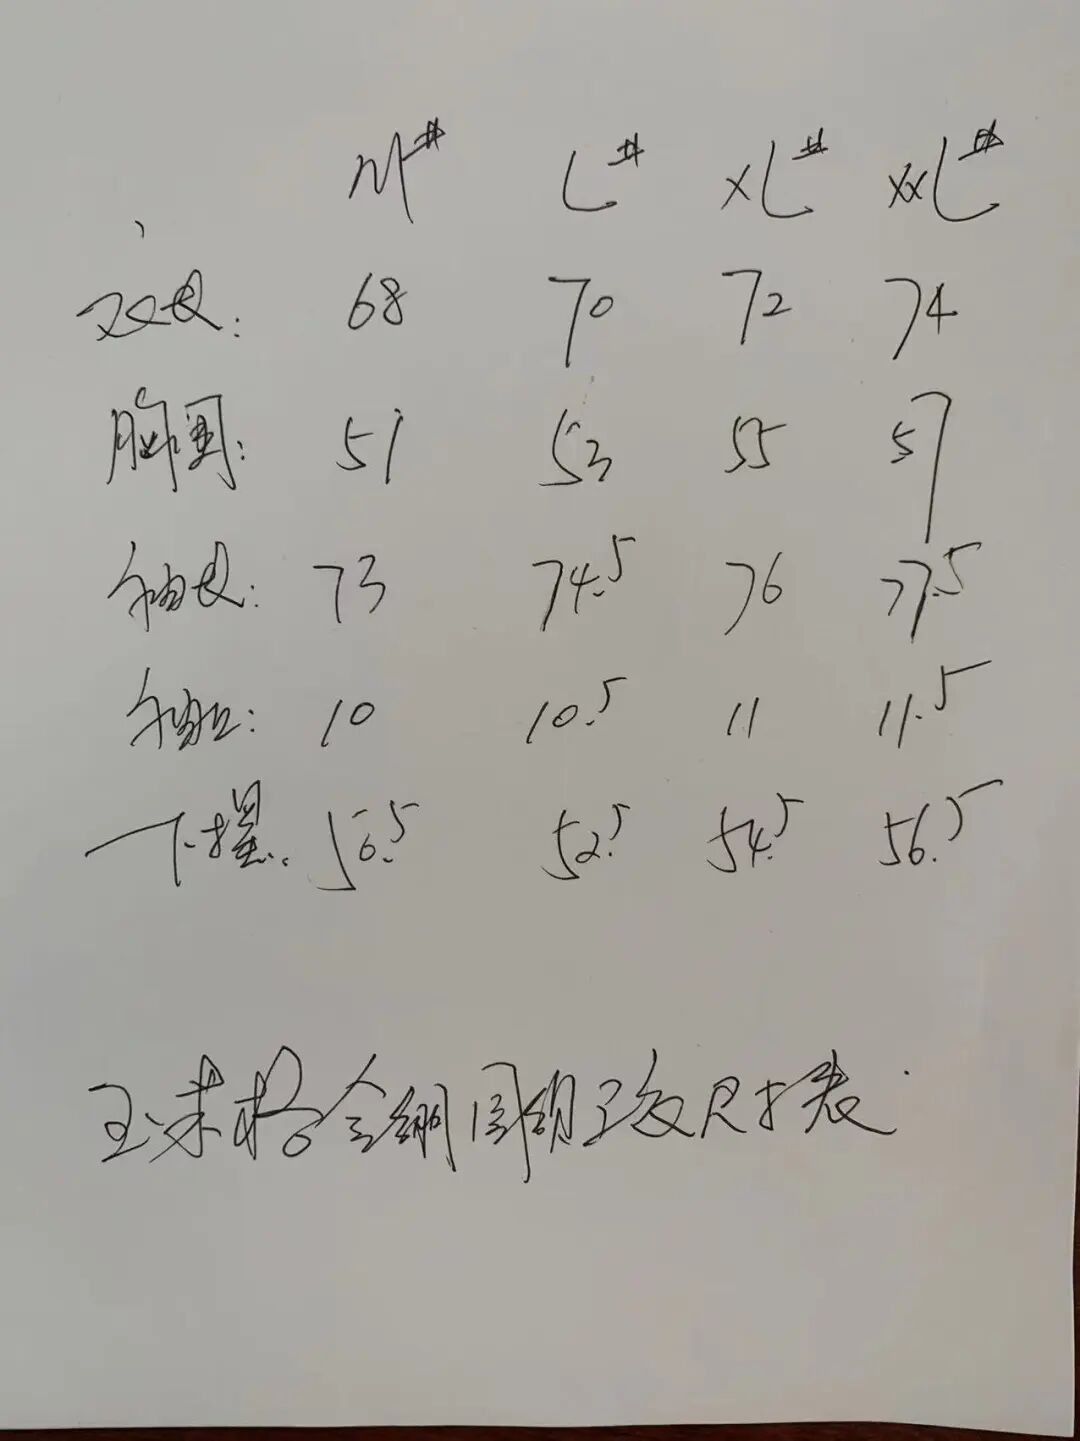 M# L# XL# XXL#
衣长: 68 70 72 74
胸围: 51 53 55 57
袖长: 73 74.5 76 77.5
袖口: 10 10.5 11 11.5
下摆: 50.5 52.5 54.5 56.5
尺寸表